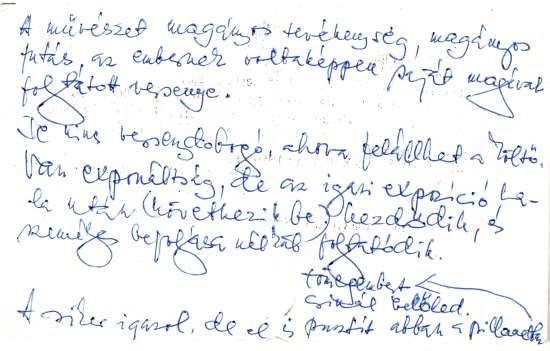 A művészet magányos tevékenység, magányos
futás, az embernek voltaképpen saját magával
folytatott versenye.
De nincs versenydobogó, ahova felállhet a költő.
Van exponáltság, de az igazi expozíció ha-
la után (következik be) kezdődik, és
személyes befolyása nélkül folytatódik.
tömegembert
csinál belőled.
A siker igazol, de el is pusztít abban a pillanatban